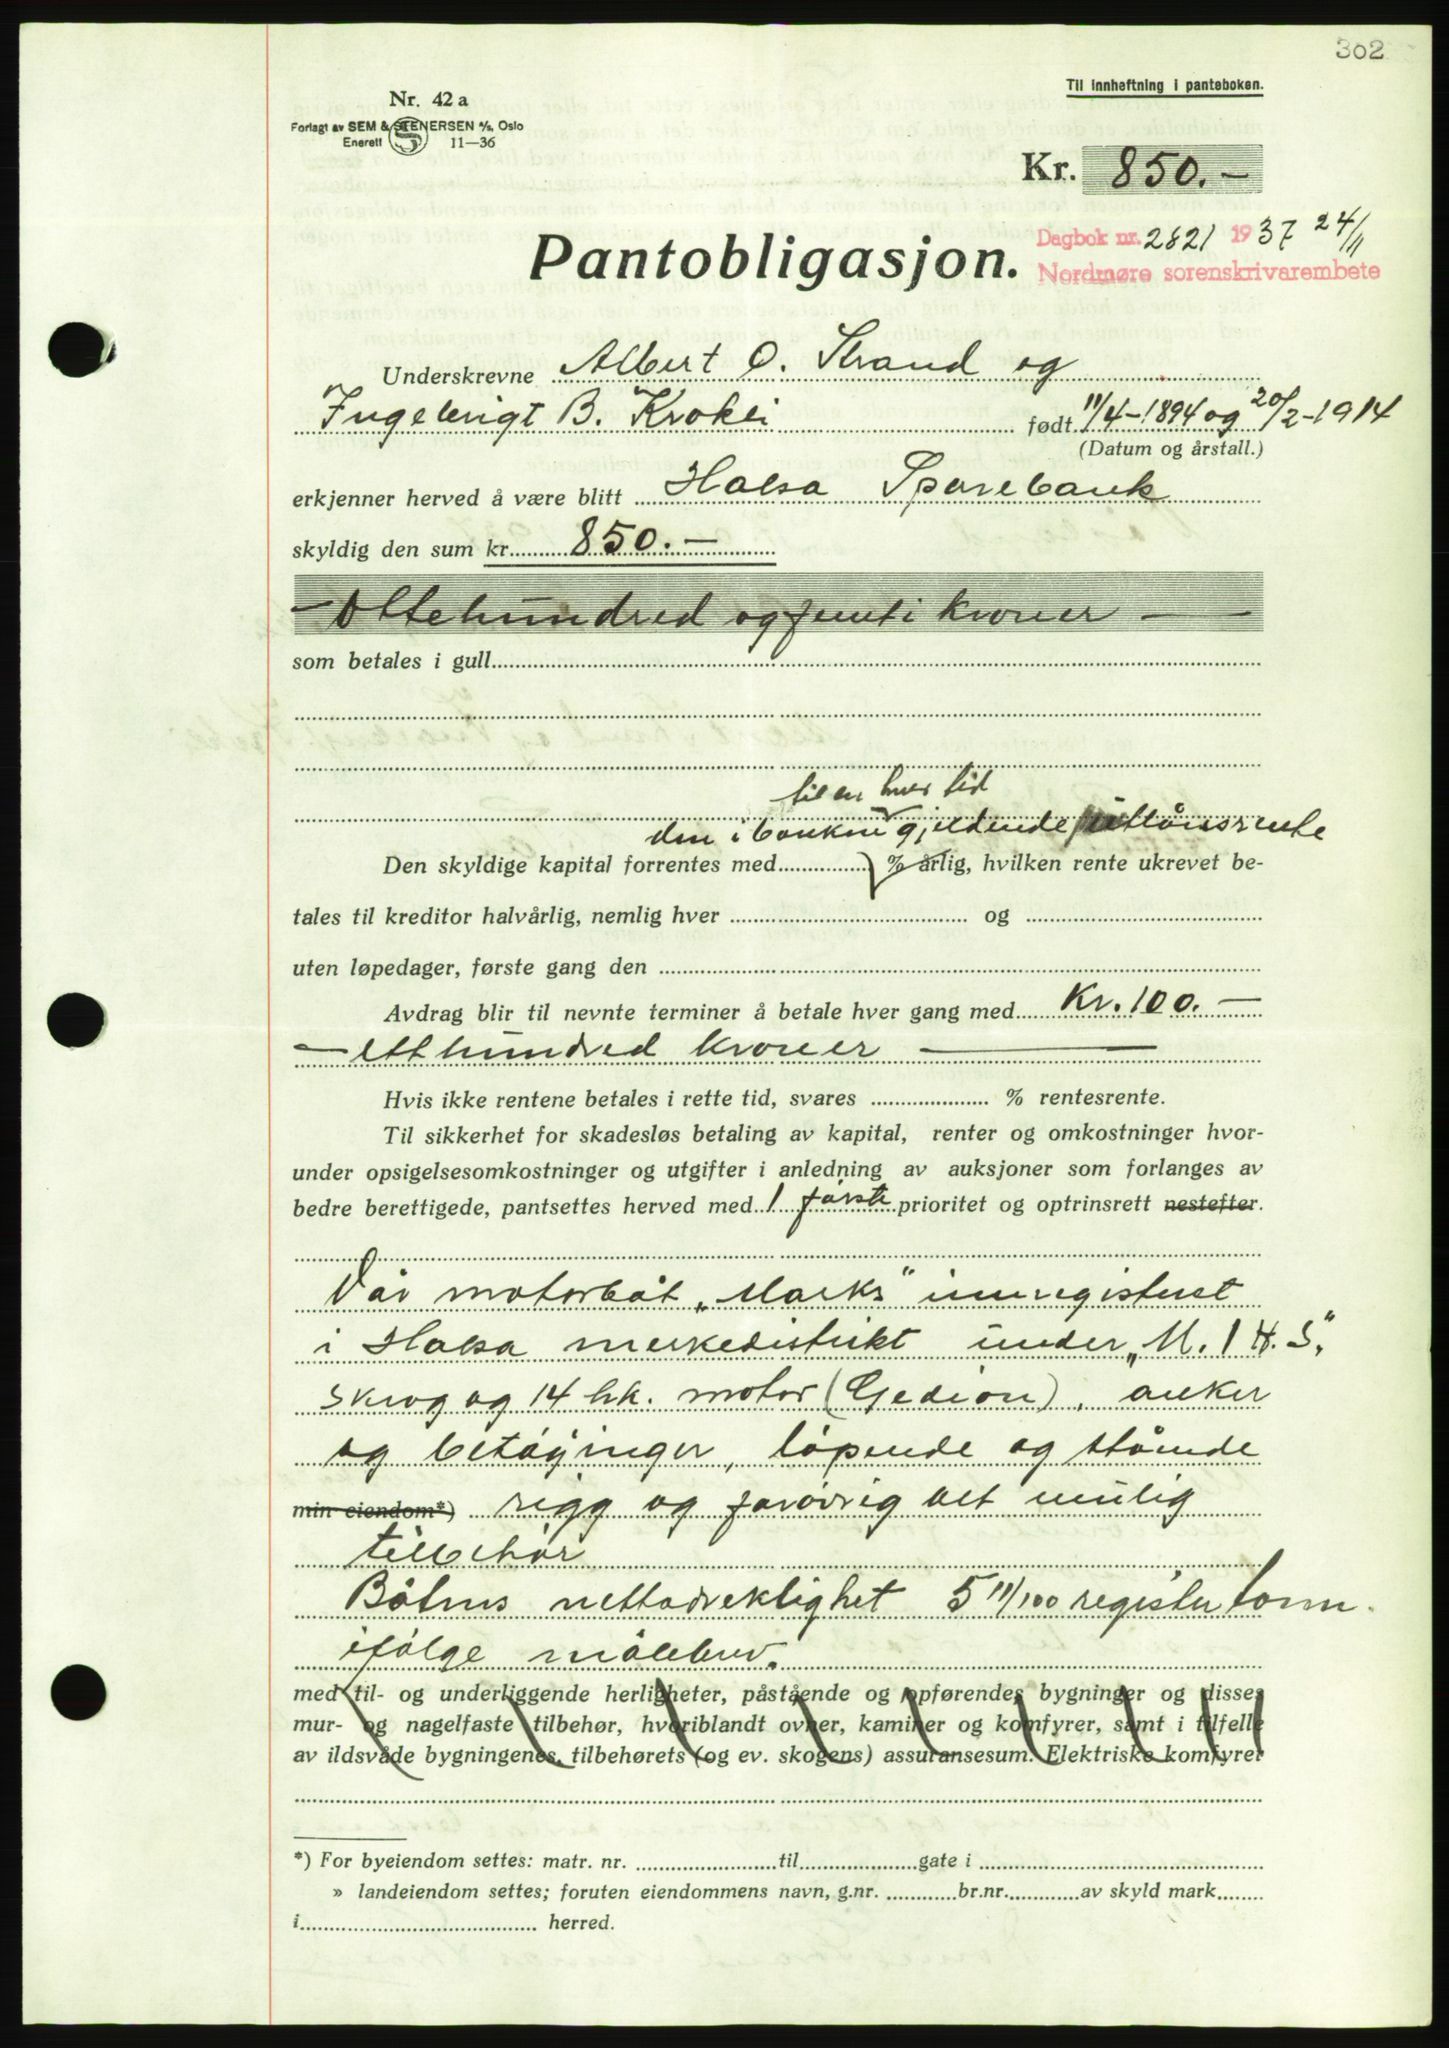 302
Nr. 42 a
Til innheftning i panteboken.
Forlagt av SEM & STENERSEN A/s, Oslo
Enerett 11—36
Kr. 850.—
Dagbok nr. 2821 1937 24/11
Pantobligasjon.
Nordmøre sorenskrivarembete
Underskrevne Albert O. Strand og
Ingebrigt B. Krokei født 11/4-1894 og 20/2-1914
(Datum og årstall.)
erkjenner herved å være blitt Halsa Sparebank
skyldig den sum kr. 850.—
— Ottehundred og femti kroner —
som betales i gull
til en hver tid
den i banken gjeldende utlånsrente
Den skyldige kapital forrentes med % årlig, hvilken rente ukrevet be-
tales til kreditor halvårlig, nemlig hver og
uten løpedager, første gang den
Avdrag blir til nevnte terminer å betale hver gang med Kr. 100.—
— etthundred kroner —
Hvis ikke rentene betales i rette tid, svares % rentesrente.
Til sikkerhet for skadesløs betaling av kapital, renter og omkostninger hvor-
under opsigelsesomkostninger og utgifter i anledning av auksjoner som forlanges av
bedre berettigede, pantsettes herved med 1 første prioritet og optrinsrett nestefter.
Vår motorbåt „Marks" innregistrert
i Halsa merkedistrikt under „M. 1 H. S."
skrog og 14 hk. motor (Gedion), anker
og betøginger, løpende og stående
min eiendom*) rigg og forøvrig alt mulig
tilbehør
Båtens nettodrektighet 5 11/100 register tonn.
ifølge målebrev.
med til- og underliggende herligheter, påstående og opførendes bygninger og disses
mur- og nagelfaste tilbehør, hvoriblandt ovner, kaminer og komfyrer, samt i tilfelle
av ildsvåde bygningenes, tilbehørets (og ev. skogens) assuransesum. Elektriske komfyrer
*) For byeiendom settes: matr. nr. til gate i
» landeiendom settes; foruten eiendommens navn, g.nr. br.nr. av skyld mark
i herred.